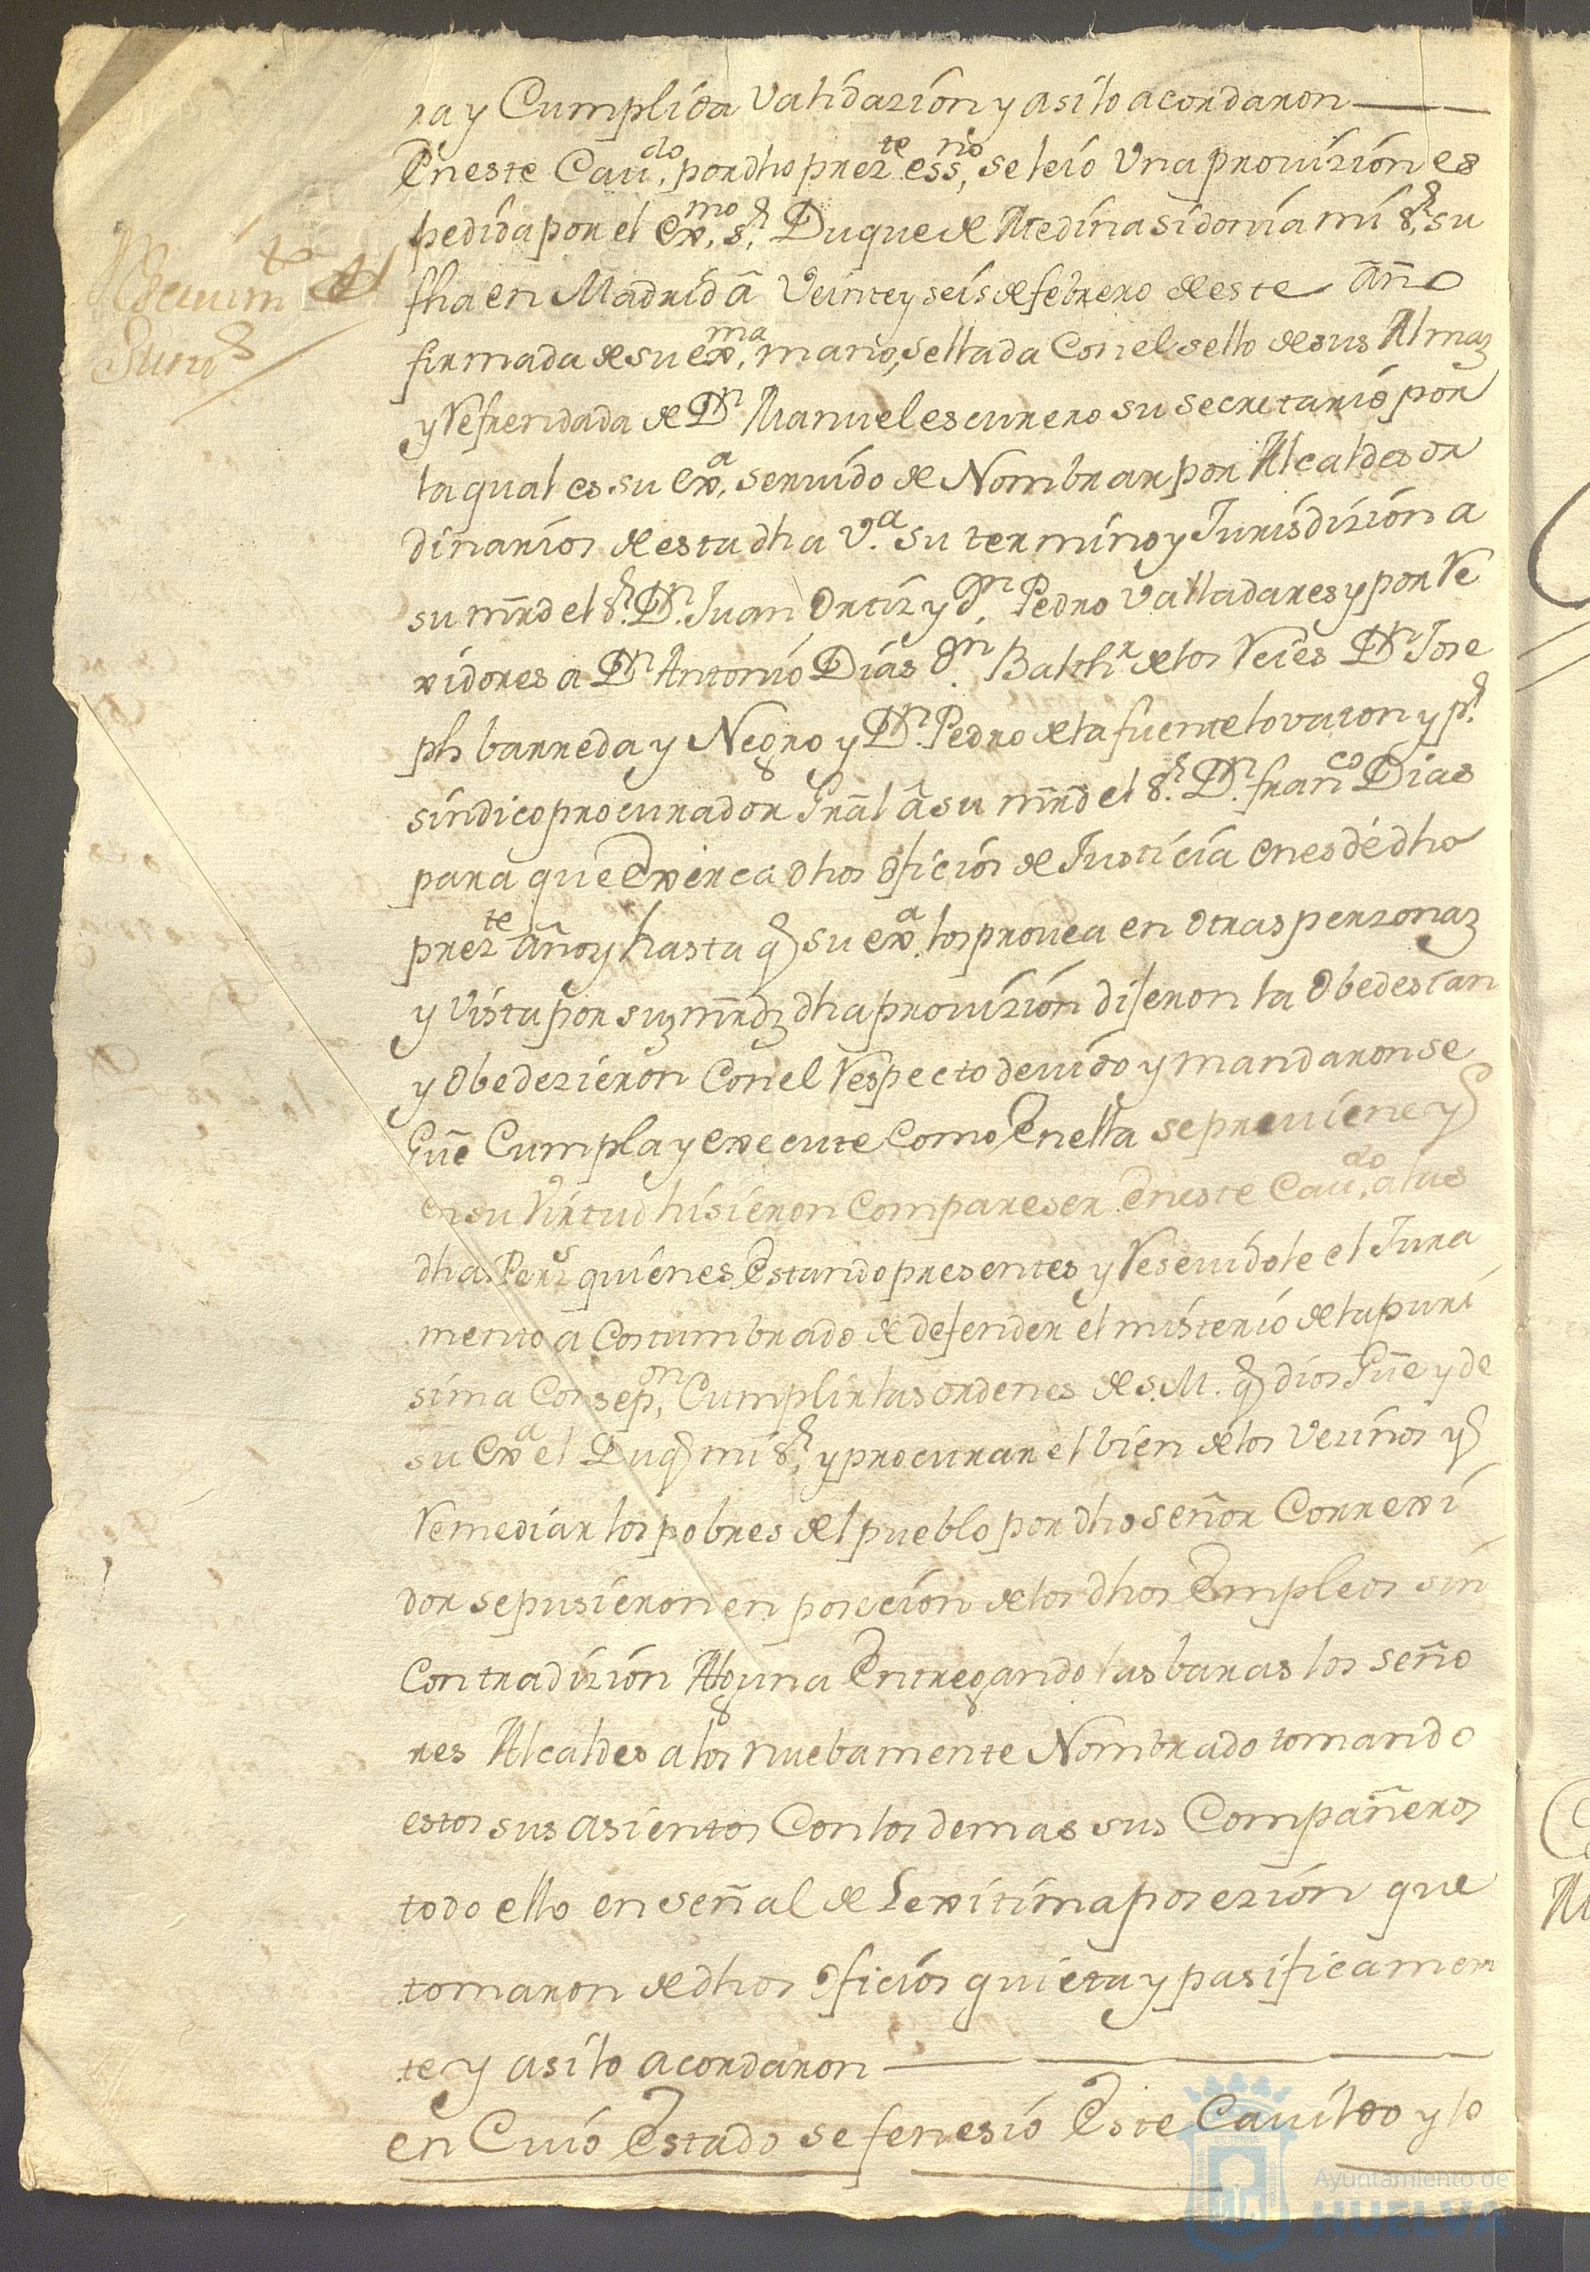 ra y Cumplida Validazion y asilo acordaron
En este Cau.do, por dho prez.te ess.no, se leio Una provizion es
pedida por el Ex.mo s.r Duque de Medina sidonia mi s.r, su
fha en Madrid â Veinte y seis de febrero de este Año
firmada de su ex.ma mano, sellada Con el sello de sus Almaz
y Refrendada de D.n Manuel escurero su secretario por
la qual es su ex.a, seruido de Nombrar por Alcaldes or
dinarios de esta dha V.a su termino y Jurisdizion a
su mrd el s.r D.n Juan Ortiz y d.n Pedro Valladares y por Re
xidores a D.n Antonio Dias d.n Balth.r de los Reies D.n Jose
ph barreda y Negro y D.n Pedro de la fuente lovaton y p.r
sindico procurador Gral â su mrd el s.r D.n fran.co Dias
para que Exerca dhos oficios de Justicia en es dé dho
prez.te año y hasta q su ex.a los provea en otras perzonaz
y Vista por suz mrdz dha provizion dijeron la Obedesian
y Obedezieron Con el Respecto deuido y mandaron se
Gue Cumpla y execute Como En ella se preuiene y
en su Virtud hisieron Compareser En este Cau.do, a las
dhas Perz.s quienes Estando presentes y Reseuidole el Jura
mento a Costumbrado de defender el misterio de la puri
sima Consep.on, Cumplir las ordenes de s. M. q dios Gue y de
su Ex.a el Duq mi s.r, y procurar el bien de los Vezinos y
Remediar los pobres del pueblo por dho señor Correxi
dor se pusieron en poscecion de los dhos Empleos sin
Contradizion Alguna Entregando las baras los seño
res Alcaldes a los nuebamente Nombrado tomando
estos sus asientos Con los demas sus Compañeros
todo ello en señal de Lexitima posezion que
tomaron de dhos oficios quieta y pasificamen
te y asilo acordaron
en Cuio Estado se fenesio Este Cauildo y lo
Ayuntamiento de
HUELVA